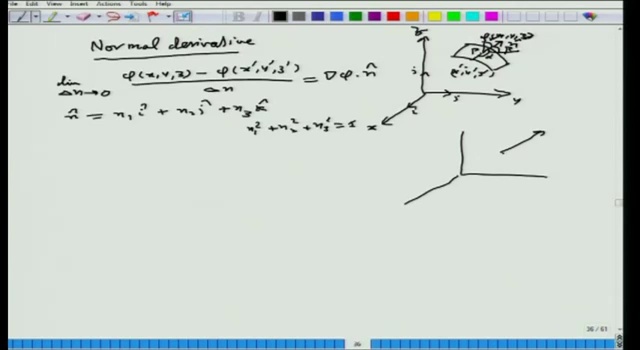 Edit View Insert Actions Tools Help
Normal derivative
lim Δn→0 φ(x,y,z) - φ(x',y',z') / Δn = ∇φ.n̂
n̂ = n₁ î + n₂ ĵ + n₃ k̂
n₁² + n₂² + n₃² = 1
z
φ(x,y,z)
(x',y',z')
y
x
36 / 61
36